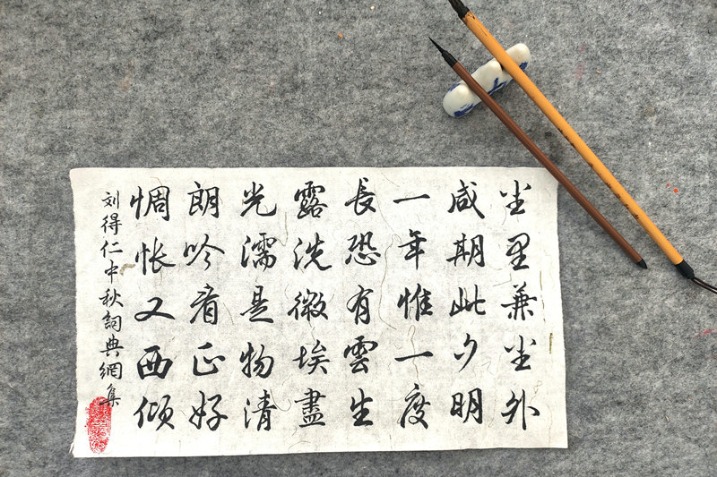 尘里兼尘外
咸期此夕明
一年惟一度
長恐有雲生
露洗微埃盡
光濡是物清
朗吟看正好
惆怅又西倾
刘得仁中秋詞典網集